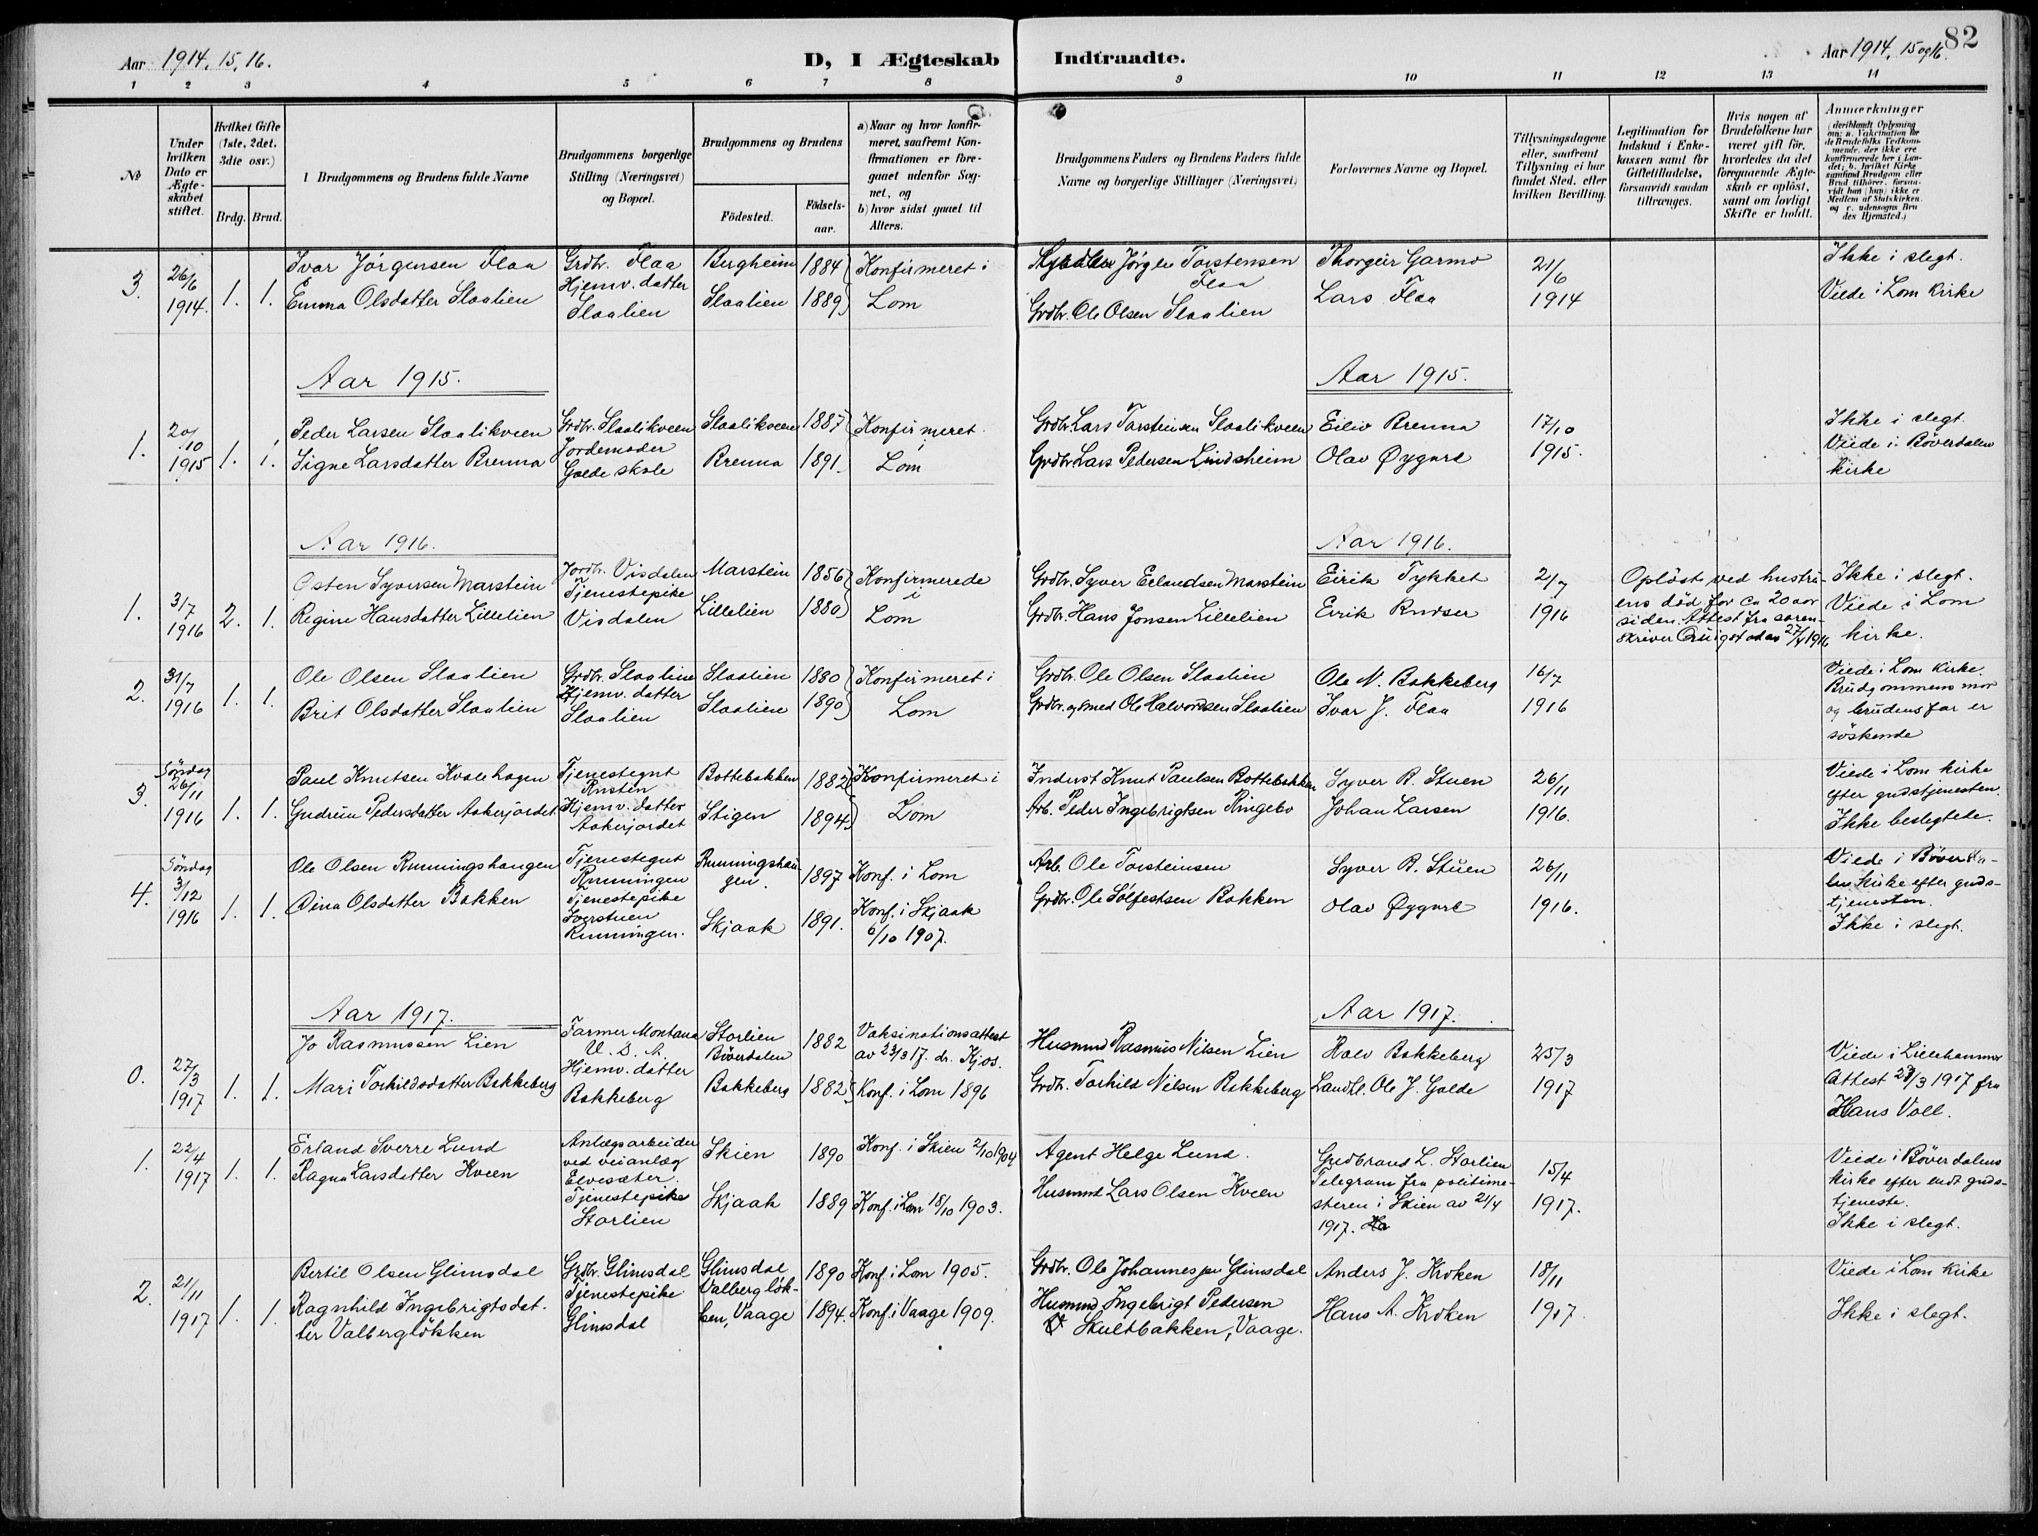 82
Aar 1914. 15. 16.
D, I Ægteskab Indtraadte.
Aar 1914, 15 og 16.
1 2 3 4 5 6 7 8 9 10 11 12 13 14
No
Under hvilken Dato er Ægteskabet stiftet.
Hvilket Gifte (1ste, 2det, 3die osv.)
Brdg. Brud.
Brudgommens og Brudens fulde Navne
Brudgommens borgerlige Stilling (Næringsvei) og Bopæl.
Brudgommens og Brudens
Fødested. Fødselsaar.
a) Naar og hvor konfirmeret, saafremt Konfirmationen er foregaaet udenfor Sognet, og
b) hvor sidst gaaet til Alters.
Brudgommens Faders og Brudens Faders fulde Navne og borgerlige Stillinger (Næringsvei)
Forlovernes Navne og Bopæl.
Tillysningsdagene eller, saafremt Tillysning ei har fundet Sted, efter hvilken Bevilling.
Legitimation for Indskud i Enkekassen samt for Giftetilladelse, forsaavidt saadan tiltrænges.
Hvis nogen af Brudefolkene har været gift før, hvorledes da det foregaaende Ægteskab er opløst, samt om lovligt Skifte er holdt.
Anmerkninger (deriblandt Oplysning om: a. Vakcination for de Brudefolks Vedkommende, der ikke ere konfirmerede her i Landet; b. hvilket Kirkesamfund Brudgom eller Brud tilhører, forsaavidt han (hun) ikke er Medlem af Statskirken, og c. udensogns Brudes Hjemsted.)
3. 26/6 1914. 1. 1.
Ivar Jørgensen Flaa
Emma Olsdatter Slaalien
Grdbr. Flaa
Hjemv. datter
Slaalien
Bergheim 1884
Slaalien 1889
Konfirmeret i
Lom
Jørgen Torstensen
Flaa
Grdbr. Ole Olsen Slaalien
Thorgeir Garmo
Lars Flaa
21/6
1914
Ikke i slegt.
Viede i Lom kirke
Aar 1915.
Aar 1915.
1. 20/10 1915 1. 1.
Peder Larsen Slaalikveen
Signe Larsdatter Brenna
Grdbr. Slaalikveen
Jordemoder
Galde skole
Slaalikveen 1887
Brenna 1891.
Konfirmeret
i
Lom
Grdbr. Lars Torsteinsen Slaalikveen
Grdbr. Lars Pedersen Lindsheim
Eiliv Brenna
Olav Øygard
17/10
1915.
Ikke i slegt.
Viede i Bøverdalen
kirke
Aar 1916.
Aar 1916.
1. 3/7 1916 2. 1.
Østen Syversen Marstein
Regine Hansdatter Lillelien
Jordbr. Visdalen
Tjenestepike
Visdalen
Marstein 1856
Lillelien 1880
Konfirmerede
i
Lom
Grdbr. Syver Erlandsen Marstein
Grdbr. Hans Jonsen Lillelien
Eirik Tykket
Eirik Rudser
2/7
1916
Opløst ved hustru-
ens død for ca 20 aar
siden. Attest fra soren-
skriver Quigstad av 27/4 1916
Ikke i slegt.
Viede i Lom
kirke.
2. 31/7 1916 1. 1.
Ole Olsen Slaalien
Brit Olsdatter Slaalien
Grdbr. Slaalien
Hjemv. datter
Slaalien
Slaalien 1880
Slaalien 1890
Konfirmeret i
Lom
Grdbr. Ole Olsen Slaalien
Grdbr. og smed Ole Halvordsen Slaalien
Ole N. Bakkeberg
Ivar J. Flaa
16/7
1916
Viede i Lom kirke.
Brudgommens mor
og brudens far er
søskende
3. Søndag 26/11 1916 1. 1.
Paul Knutsen Kvalehagen
Gudrun Pedersdatter Aakerjordet
Tjenestegut
Rusten
Hjemv. datter
Aakerjordet
Bottebakken 1882
Stigen 1894
Konfirmeret i
Lom
Inderst Knut Paulsen Bottebakken
Arb. Peder Ingebrigtsen Ringebo
Syver R. Stuen
Johan Larsen
26/11
1916.
Viede i Lom kirke
efter gudstjenesten.
Ikke beslegtede.
4. Søndag 3/12 1916 1. 1.
Ole Olsen Runningshaugen
Dina Olsdatter Bakken
Tjenestegut
Runningen
Tjenestepike
Sverstuen
Runningen.
Runningshau-
gen. 1897
Skjaak 1891.
Konf. i Lom
Konf. i Skjaak
6/10 1907.
Arb. Ole Torsteinsen
Grdbr. Ole Sølfestsen Bakken
Syver R. Stuen
Olav Øygard
26/11
1916.
Viede i Bøverda-
len kirke efter guds-
tjenesten.
Ikke i slegt.
Aar 1917.
Aar 1917.
0. 27/3 1917 1. 1.
Jo Rasmussen Lien
Mari Torhildsdatter Bakkeberg
Farmer Montana
U. S. A.
Hjemv. datter
Bakkeberg
Storlien
Bøverdalen 1882
Bakkeberg 1882
Vaksinationsattest
av 23/3 17. dr. Kjos.
Konf. i Lom 1896
Husmnd Rasmus Nilsen Lien
Grdbr. Torhild Nilsen Bakkeberg
Rolv Bakkeberg
Landhl. Ole J. Galde
25/3
1917
Viede i Lillehammer
Attest 27/3 1917 fra
Hans Voll.
1. 22/4 1917 1. 1.
Erland Sverre Lund
Ragna Larsdatter Kveen
Anlægsarbeider
ved veianlæg
Elvesæter.
Tjenestepike
Storlien
Skien 1890
Skjaak 1889
Konf. i Skien 2/10 1904
Konf. i Lom 18/10 1903.
Agent Helge Lund.
Husmnd Lars Olsen Kveen
Gudbrand L. Storlien
Telegram fra politime-
steren i Skien av 21/4
1917.
15/4
1917.
Viede i Bøverdalens
kirke efter endt guds-
tjeneste.
Ikke i slegt.
2. 21/11 1917 1. 1.
Bertil Olsen Glimsdal
Ragnhild Ingebrigtsdat-
ter Valbergløkken
Grdbr. Glimsdal
Tjenestepike
Glimsdal
Glimsdal 1890
Valbergløk-
ken, Vaage 1894.
Konf. i Lom 1905.
Konf. i Vaage 1909.
Grdbr. Ole Johannessen Glimsdal
Husmnd Ingebrigt Pedersen
Skultbakken, Vaage.
Anders J. Kroken
Hans A. Kroken
18/11
1917.
Viede i Lom kirke
Ikke i slegt.